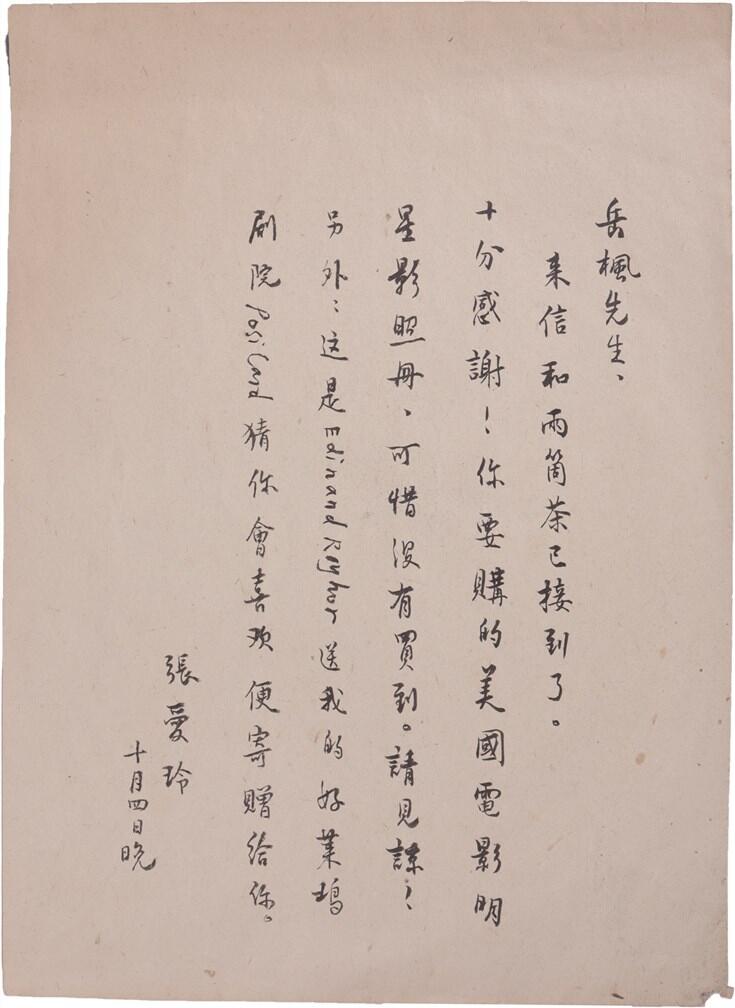 岳楓先生、
来信和兩箇茶已接到了。
十分感謝！你要購的美國電影明
星影照冊、可惜沒有買到。請見諒！
另外：这是Edinand Reyhur送我的好莱塢
剧院Posi Card猜你會喜欢便寄贈给你。
張愛玲
十月四日晚